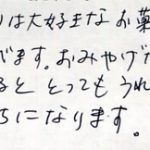 は大好きなお菓
がます。おみやげ
ると とってもうれ
ちになります。